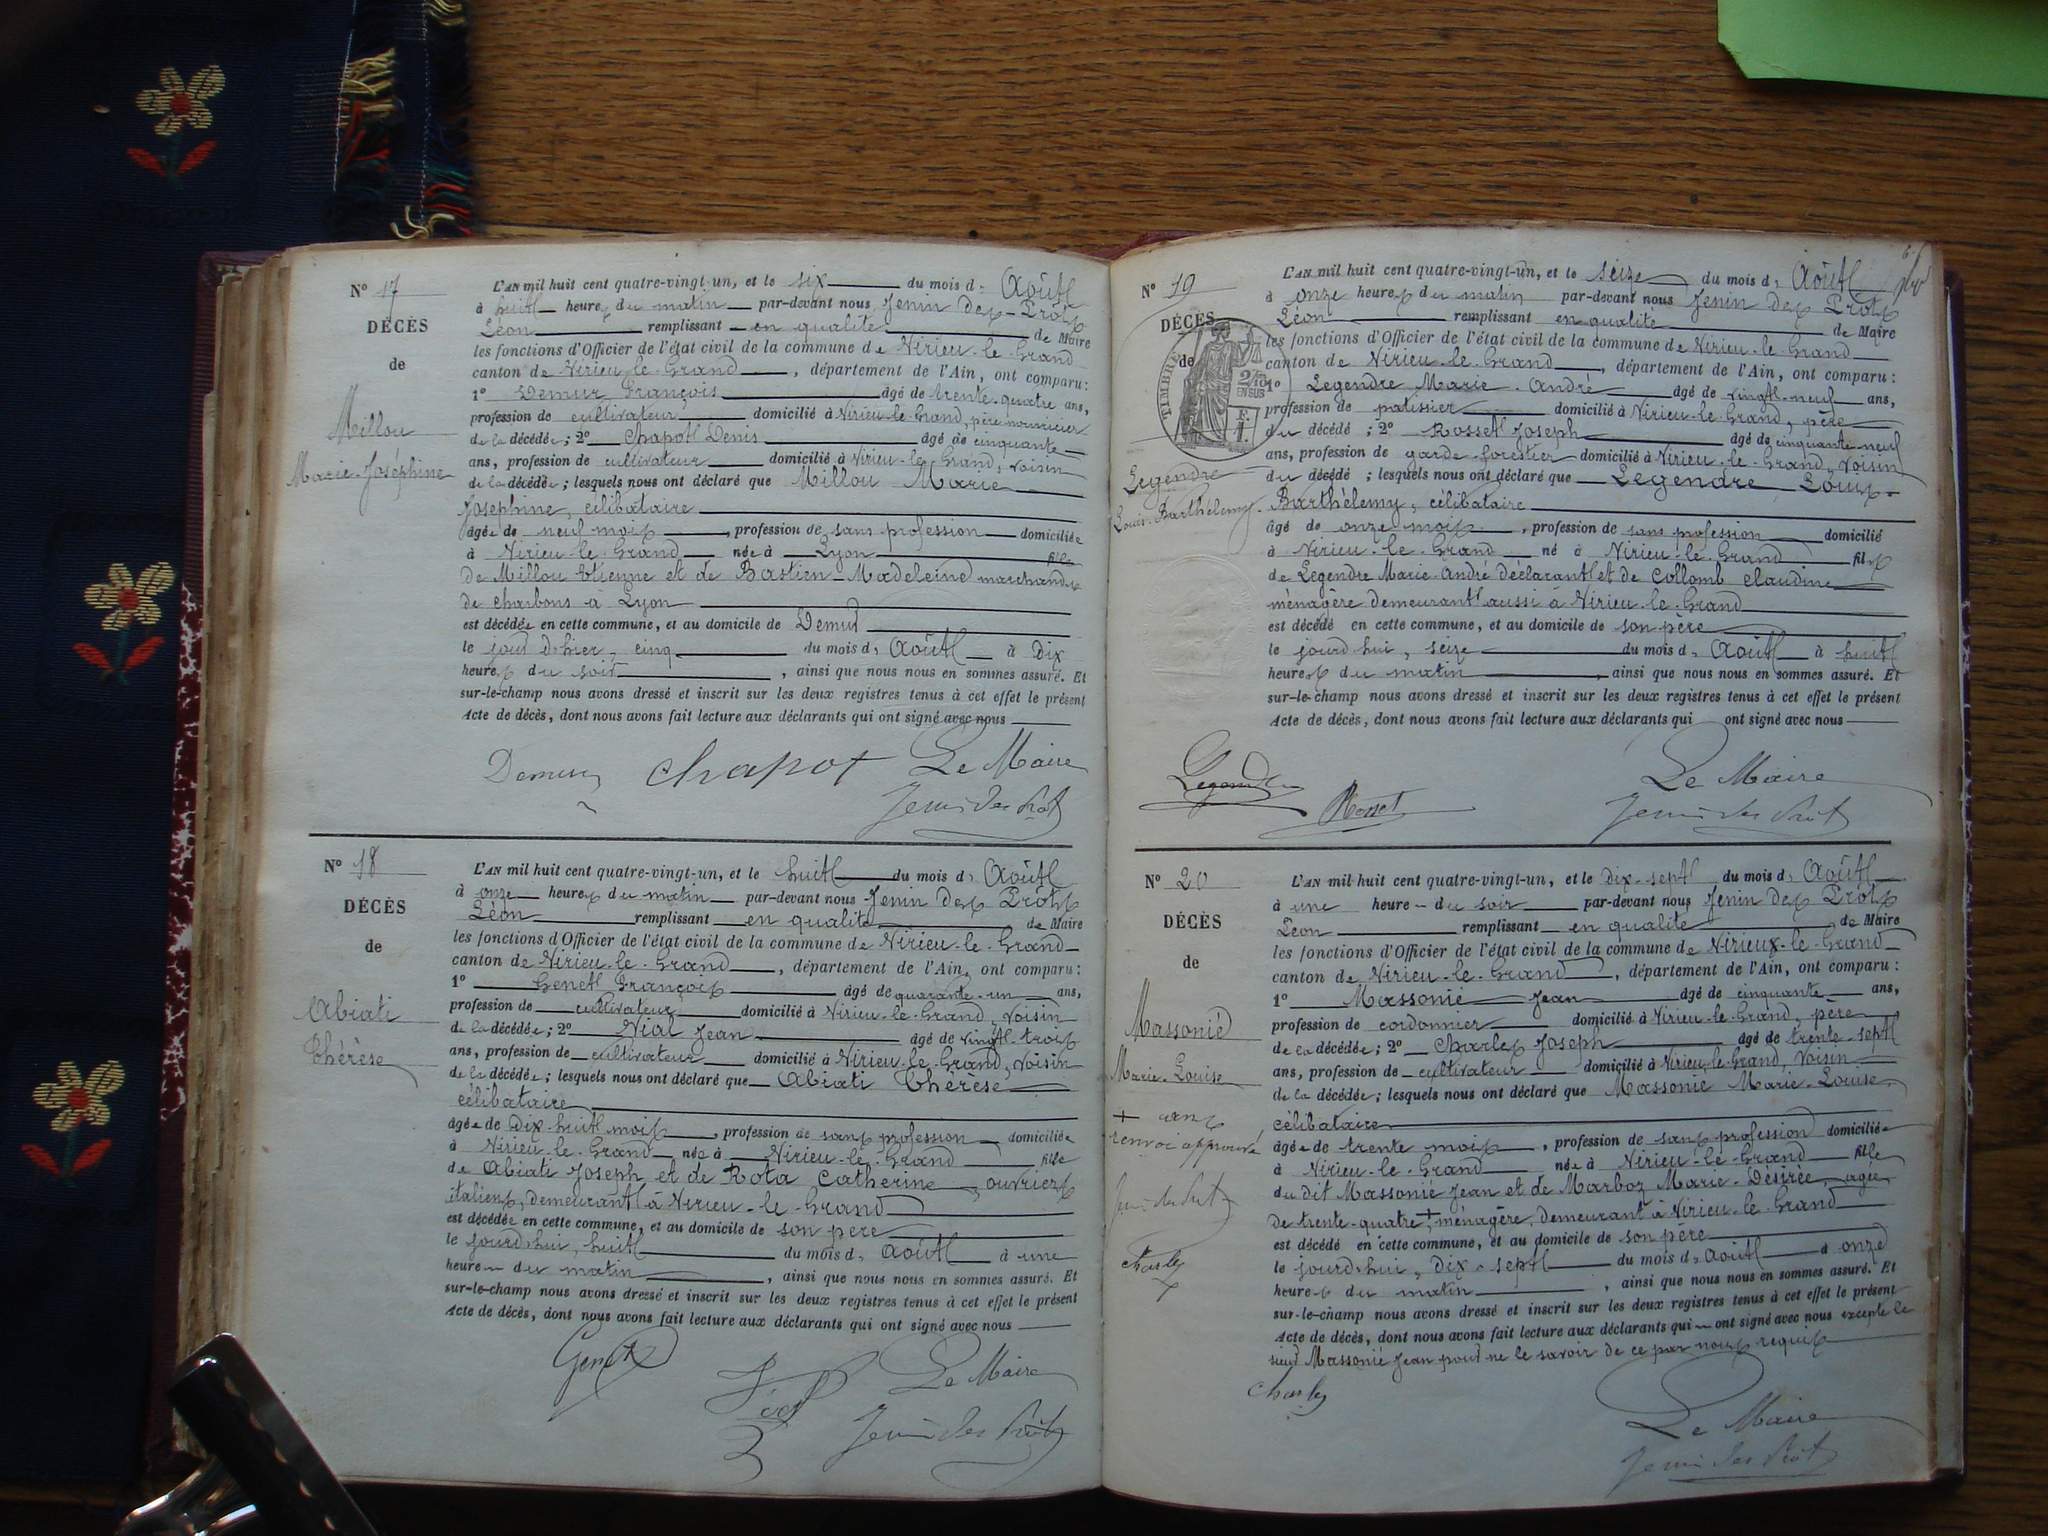 N° 17
DÉCÈS
de
Millou
Marie-Joséphine
L'AN mil huit cent quatre-vingt-un, et le six du mois d' Août
à huit heures du matin par-devant nous Jenin des Prots
Léon remplissant en qualité de Maire
les fonctions d'Officier de l'état civil de la commune de Virieu-le-Grand
canton de Virieu-le-Grand, département de l'Ain, ont comparu:
1° Demur François âgé de trente-quatre ans,
profession de cultivateur domicilié à Virieu-le-Grand, père nourricier
de la décédée; 2° Chapot Denis âgé de cinquante
ans, profession de cultivateur domicilié à Virieu-le-Grand, voisin
de la décédée; lesquels nous ont déclaré que Millou Marie
Joséphine, célibataire
âgée de neuf mois, profession de sans profession domiciliée
à Virieu-le-Grand née à Lyon fille
de Millou Etienne et de Bastien Madeleine marchands
de charbons à Lyon
est décédée en cette commune, et au domicile de Demur
le jour d'hier, cinq du mois d' Août à dix
heures du soir, ainsi que nous nous en sommes assuré. Et
sur-le-champ nous avons dressé et inscrit sur les deux registres tenus à cet effet le présent
Acte de décès, dont nous avons fait lecture aux déclarants qui ont signé avec nous
Demur Chapot Le Maire
Jenin des Prots
N° 18
DÉCÈS
de
Abiati
Thérèse
L'AN mil huit cent quatre-vingt-un, et le huit du mois d' Août
à onze heures du matin par-devant nous Jenin des Prots
Léon remplissant en qualité de Maire
les fonctions d'Officier de l'état civil de la commune de Virieu-le-Grand
canton de Virieu-le-Grand, département de l'Ain, ont comparu:
1° Genet François âgé de quarante-un ans,
profession de cultivateur domicilié à Virieu-le-Grand, voisin
de la décédée; 2° Vial Jean âgé de vingt-trois
ans, profession de cultivateur domicilié à Virieu-le-Grand, voisin
de la décédée; lesquels nous ont déclaré que Abiati Thérèse
célibataire
âgée de dix-huit mois, profession de sans profession domiciliée
à Virieu-le-Grand née à Virieu-le-Grand fille
de Abiati Joseph et de Rota Catherine, ouvriers
italiens, demeurant à Virieu-le-Grand
est décédée en cette commune, et au domicile de son père
le jourd'hui, huit du mois d' Août à une
heure du matin, ainsi que nous nous en sommes assuré. Et
sur-le-champ nous avons dressé et inscrit sur les deux registres tenus à cet effet le présent
Acte de décès, dont nous avons fait lecture aux déclarants qui ont signé avec nous
Genet
Vial
Le Maire
Jenin des Prots
N° 19
DÉCÈS
de
TIMBRE
2/10 EN SUS
F. 1.
Legendre
Louis-Barthélemy
L'AN mil huit cent quatre-vingt-un, et le seize du mois d' Août
à onze heures du matin par-devant nous Jenin des Prots
Léon remplissant en qualité de Maire
les fonctions d'Officier de l'état civil de la commune de Virieu-le-Grand
canton de Virieu-le-Grand, département de l'Ain, ont comparu:
1° Legendre Marie-André âgé de vingt-neuf ans,
profession de patissier domicilié à Virieu-le-Grand, père
du décédé; 2° Rosset Joseph âgé de cinquante-neuf
ans, profession de garde-forestier domicilié à Virieu-le-Grand, voisin
du décédé; lesquels nous ont déclaré que Legendre Louis-
Barthélemy, célibataire
âgé de onze mois, profession de sans profession domicilié
à Virieu-le-Grand né à Virieu-le-Grand fils
de Legendre Marie-André déclarant et de Collomb Claudine
ménagère demeurant aussi à Virieu-le-Grand
est décédé en cette commune, et au domicile de son père
le jourd'hui, seize du mois d' Août à huit
heures du matin, ainsi que nous nous en sommes assuré. Et
sur-le-champ nous avons dressé et inscrit sur les deux registres tenus à cet effet le présent
Acte de décès, dont nous avons fait lecture aux déclarants qui ont signé avec nous
Legendre
Rosset
Le Maire
Jenin des Prots
N° 20
DÉCÈS
de
Massonié
Marie-Louise
+ ans
renvoi approuvé
Jenin des Prots
Charles
L'AN mil huit cent quatre-vingt-un, et le dix-sept du mois d' Août
à une heure du soir par-devant nous Jenin des Prots
Léon remplissant en qualité de Maire
les fonctions d'Officier de l'état civil de la commune de Virieux-le-Grand
canton de Virieu-le-Grand, département de l'Ain, ont comparu:
1° Massonié Jean âgé de cinquante ans,
profession de cordonnier domicilié à Virieu-le-Grand, père
de la décédée; 2° Charles Joseph âgé de trente-sept
ans, profession de cultivateur domicilié à Virieu-le-Grand, voisin
de la décédée; lesquels nous ont déclaré que Massonié Marie-Louise
célibataire
âgée de trente mois, profession de sans profession domiciliée
à Virieu-le-Grand née à Virieu-le-Grand fille
du dit Massonié Jean et de Marboz Marie-Désirée, agée
de trente-quatre +, ménagère, demeurant à Virieu-le-Grand
est décédé en cette commune, et au domicile de son père
le jourd'hui, dix-sept du mois d' Août à onze
heures du matin, ainsi que nous nous en sommes assuré. Et
sur-le-champ nous avons dressé et inscrit sur les deux registres tenus à cet effet le présent
Acte de décès, dont nous avons fait lecture aux déclarants qui ont signé avec nous excepté le
sieur Massonié Jean pour ne le savoir de ce par nous requis
Charles
Le Maire
Jenin des Prots